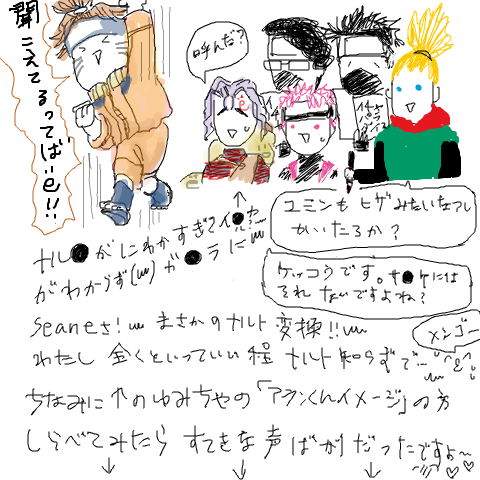 聞こえてるってば  !!
呼んだ?
ユミンも ヒザみたいな
かいたろか?
ケッコウです。サ●ケには
それ ないですよね?
メンゴー
ナル●がにわかすぎてイ●カ
がわからず(lll) ガ●ラに
seanes! まさかのナルト 変換!!
わたし 全くといっていい程 ナルト知らずで…
ちなみに ↑のゆみちゃの「アランくんイメージ」の方
しらべてみたら すてきな声 ばかりだったですよ~